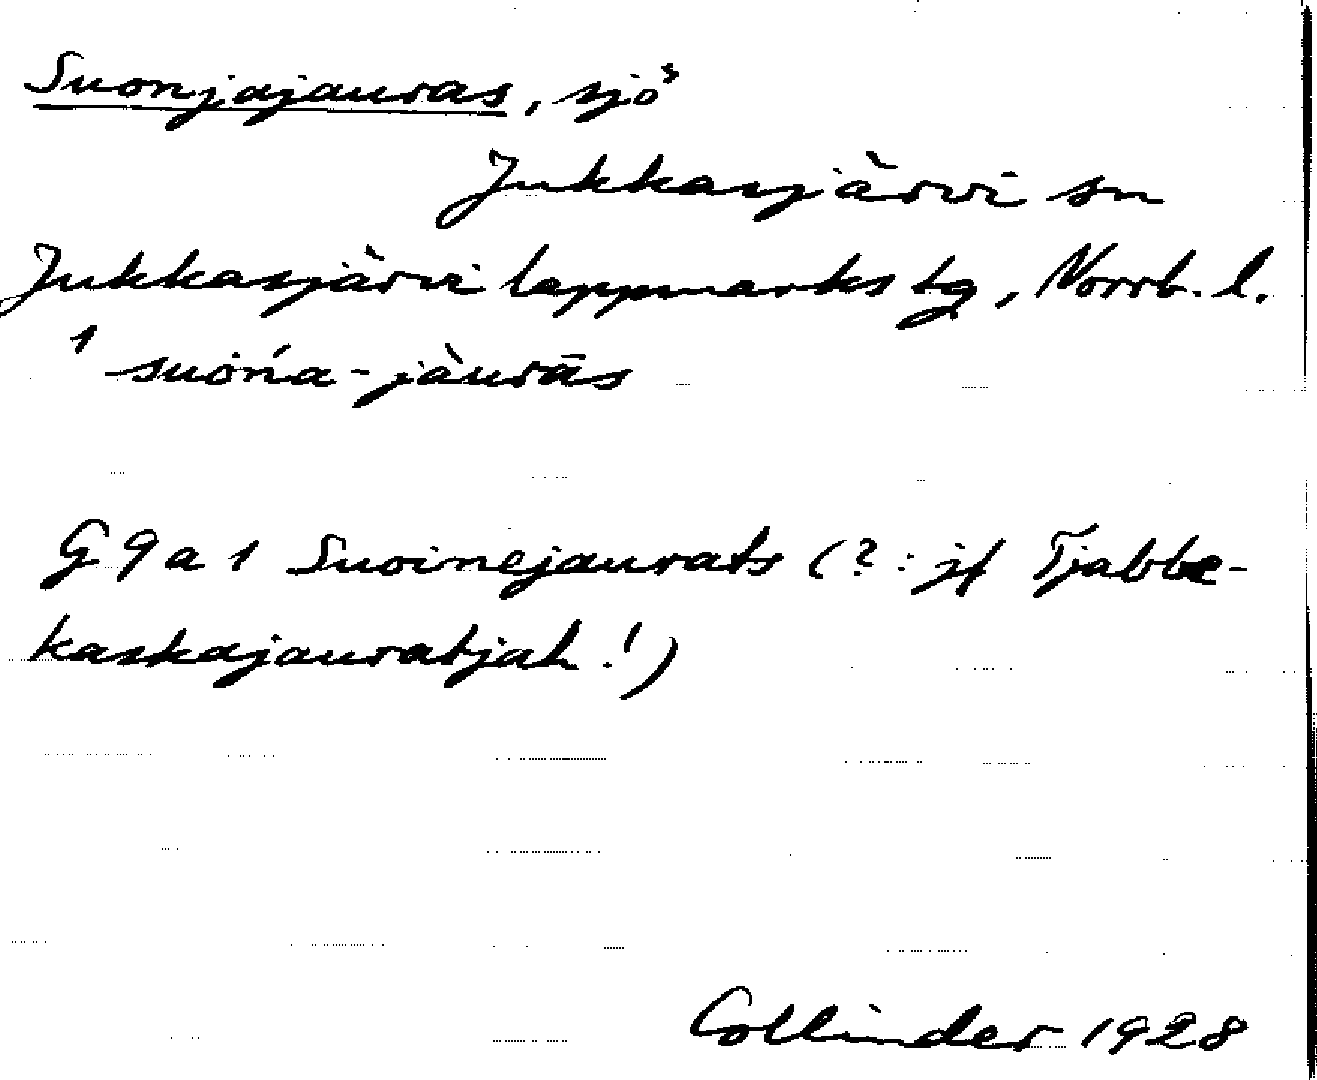 Suonjajauras, sjö
Jukkasjärvi sn
Jukkasjärvi lappmarks tg, Norrb. l.
1 suońa-jàurās
G 9 a 1 Suoinejaurats (? : jf Tjabbe-
kaskajauratjah!)
Collinder 1928